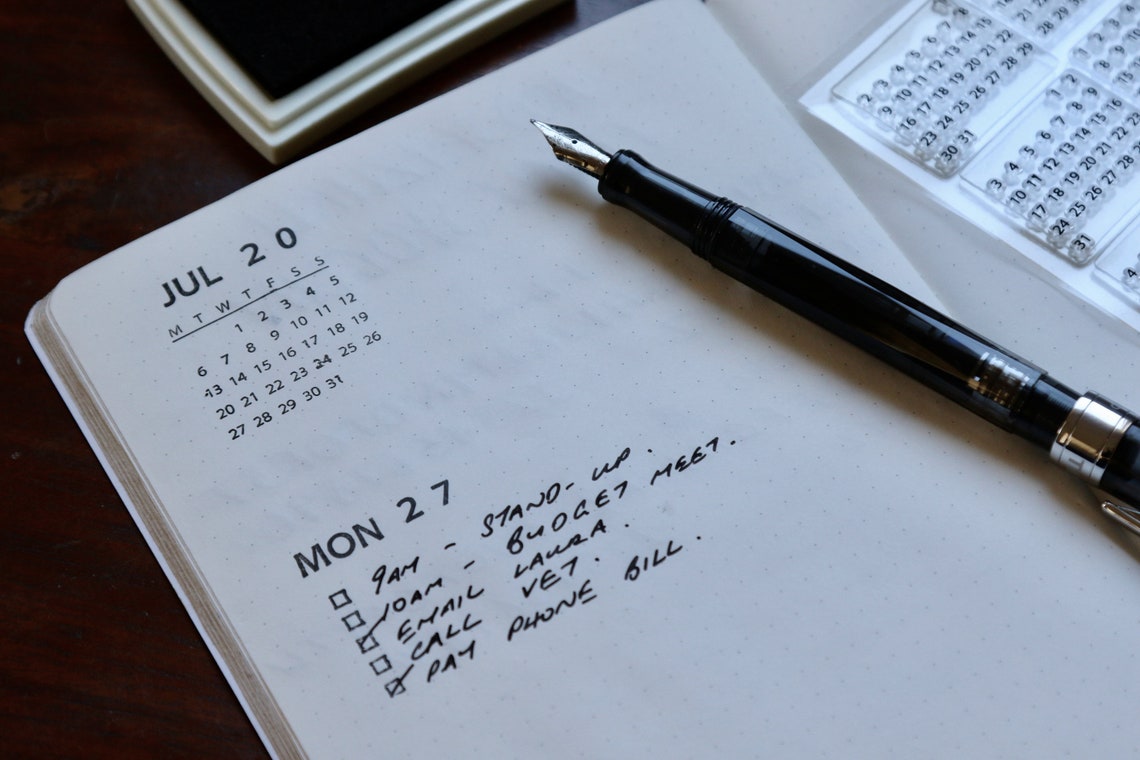 JUL 20
M T W T F S S
1 2 3 4 5
6 7 8 9 10 11 12
13 14 15 16 17 18 19
20 21 22 23 24 25 26
27 28 29 30 31
MON 27
9AM - STAND-UP.
10AM - BUDGET MEET.
EMAIL LAURA.
CALL VET.
PAY PHONE BILL.
7 8
2 3 4 5 6
9 10 11 12 13 14 15
16 17 18 19 20 21 22
23 24 25 26 27 28 29
30 31
1 2
3 4 5 6 7 8 9
10 11 12 13 14 15 16
17 18 19 20 21 22
24 25 26 27
31